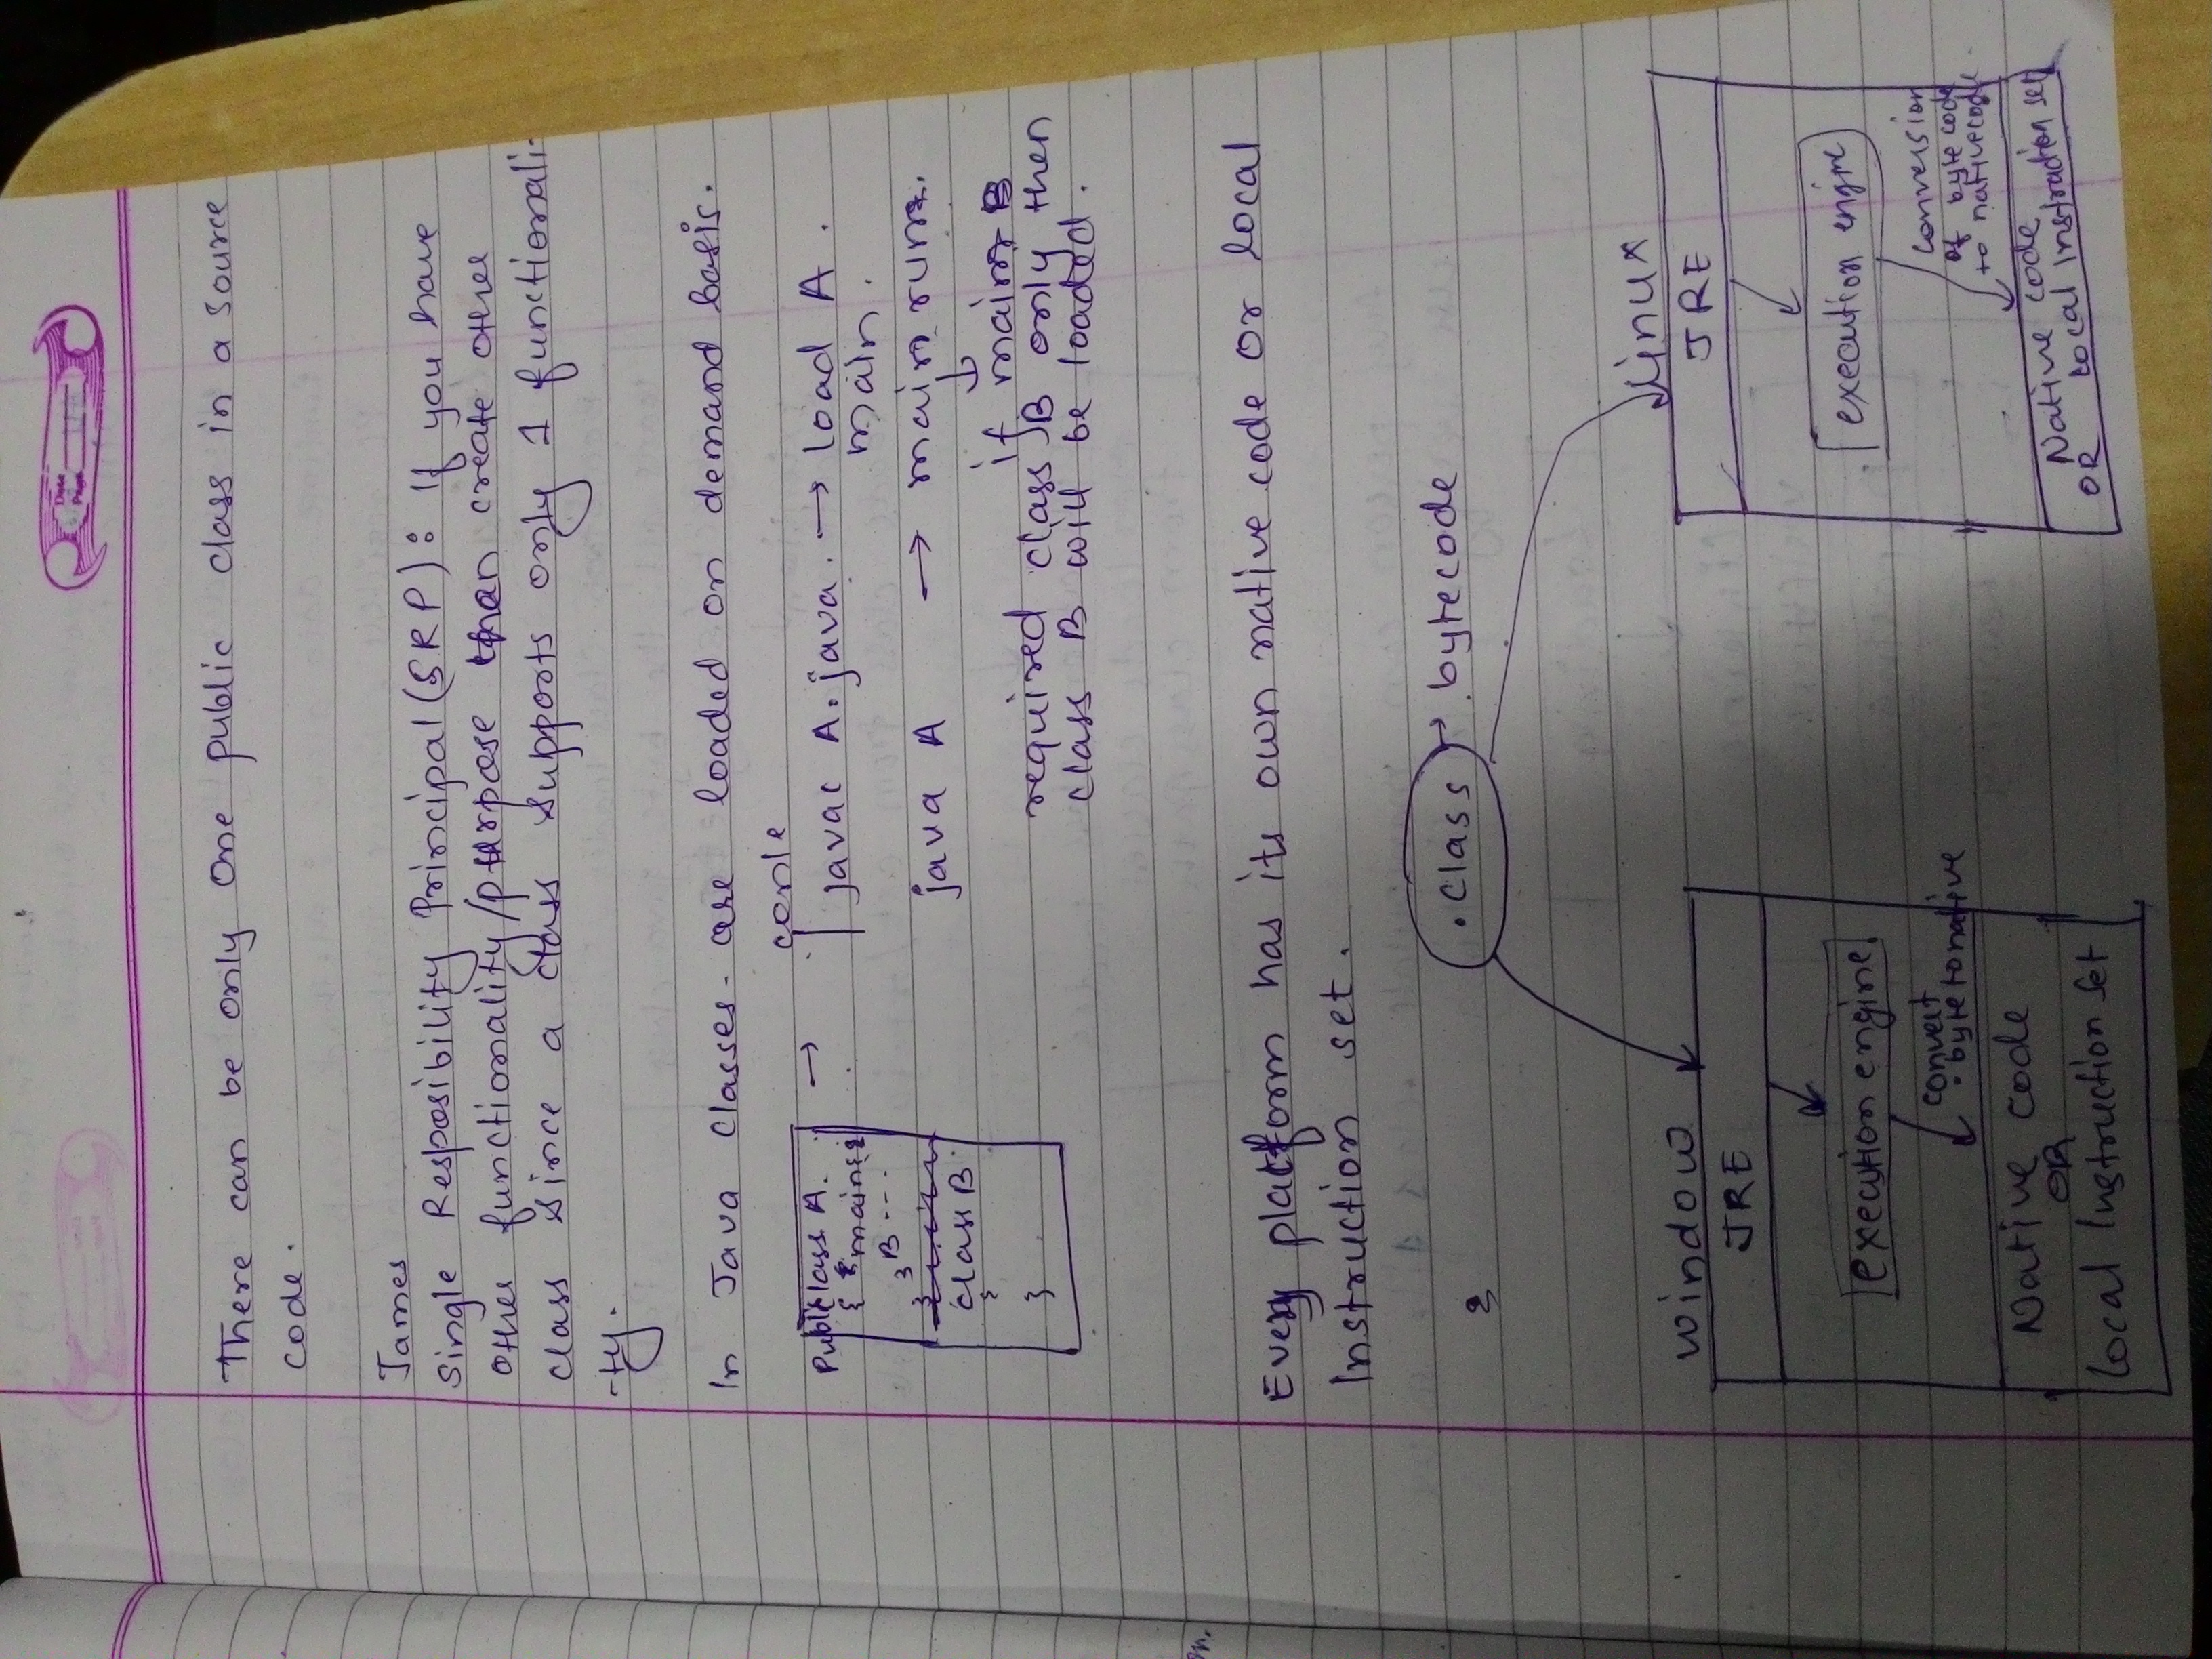 Date
Page
There can be only one public class in a source
code.
James
Single Resposibility Principal (SRP): If you have
other functionality/purpose than create other
class since a class supports only 1 functionali-
-ty.
In Java Classes are loaded on demand basis.
Public class A.
{ main {
B ---
}
}
class B
{
}
→
javac A.java. → load A.
main.
java A → main run.
↓
if main B
required class B only then
class B will be loaded.
Every platform has its own native code or local
Instruction set.
.class → bytecode
window
JRE
execution engine
convert
byte to native
Native code
OR
Local Instruction set
Linux
JRE
execution engine
conversion
of byte code
to native code
Native code
OR Local Instruction set